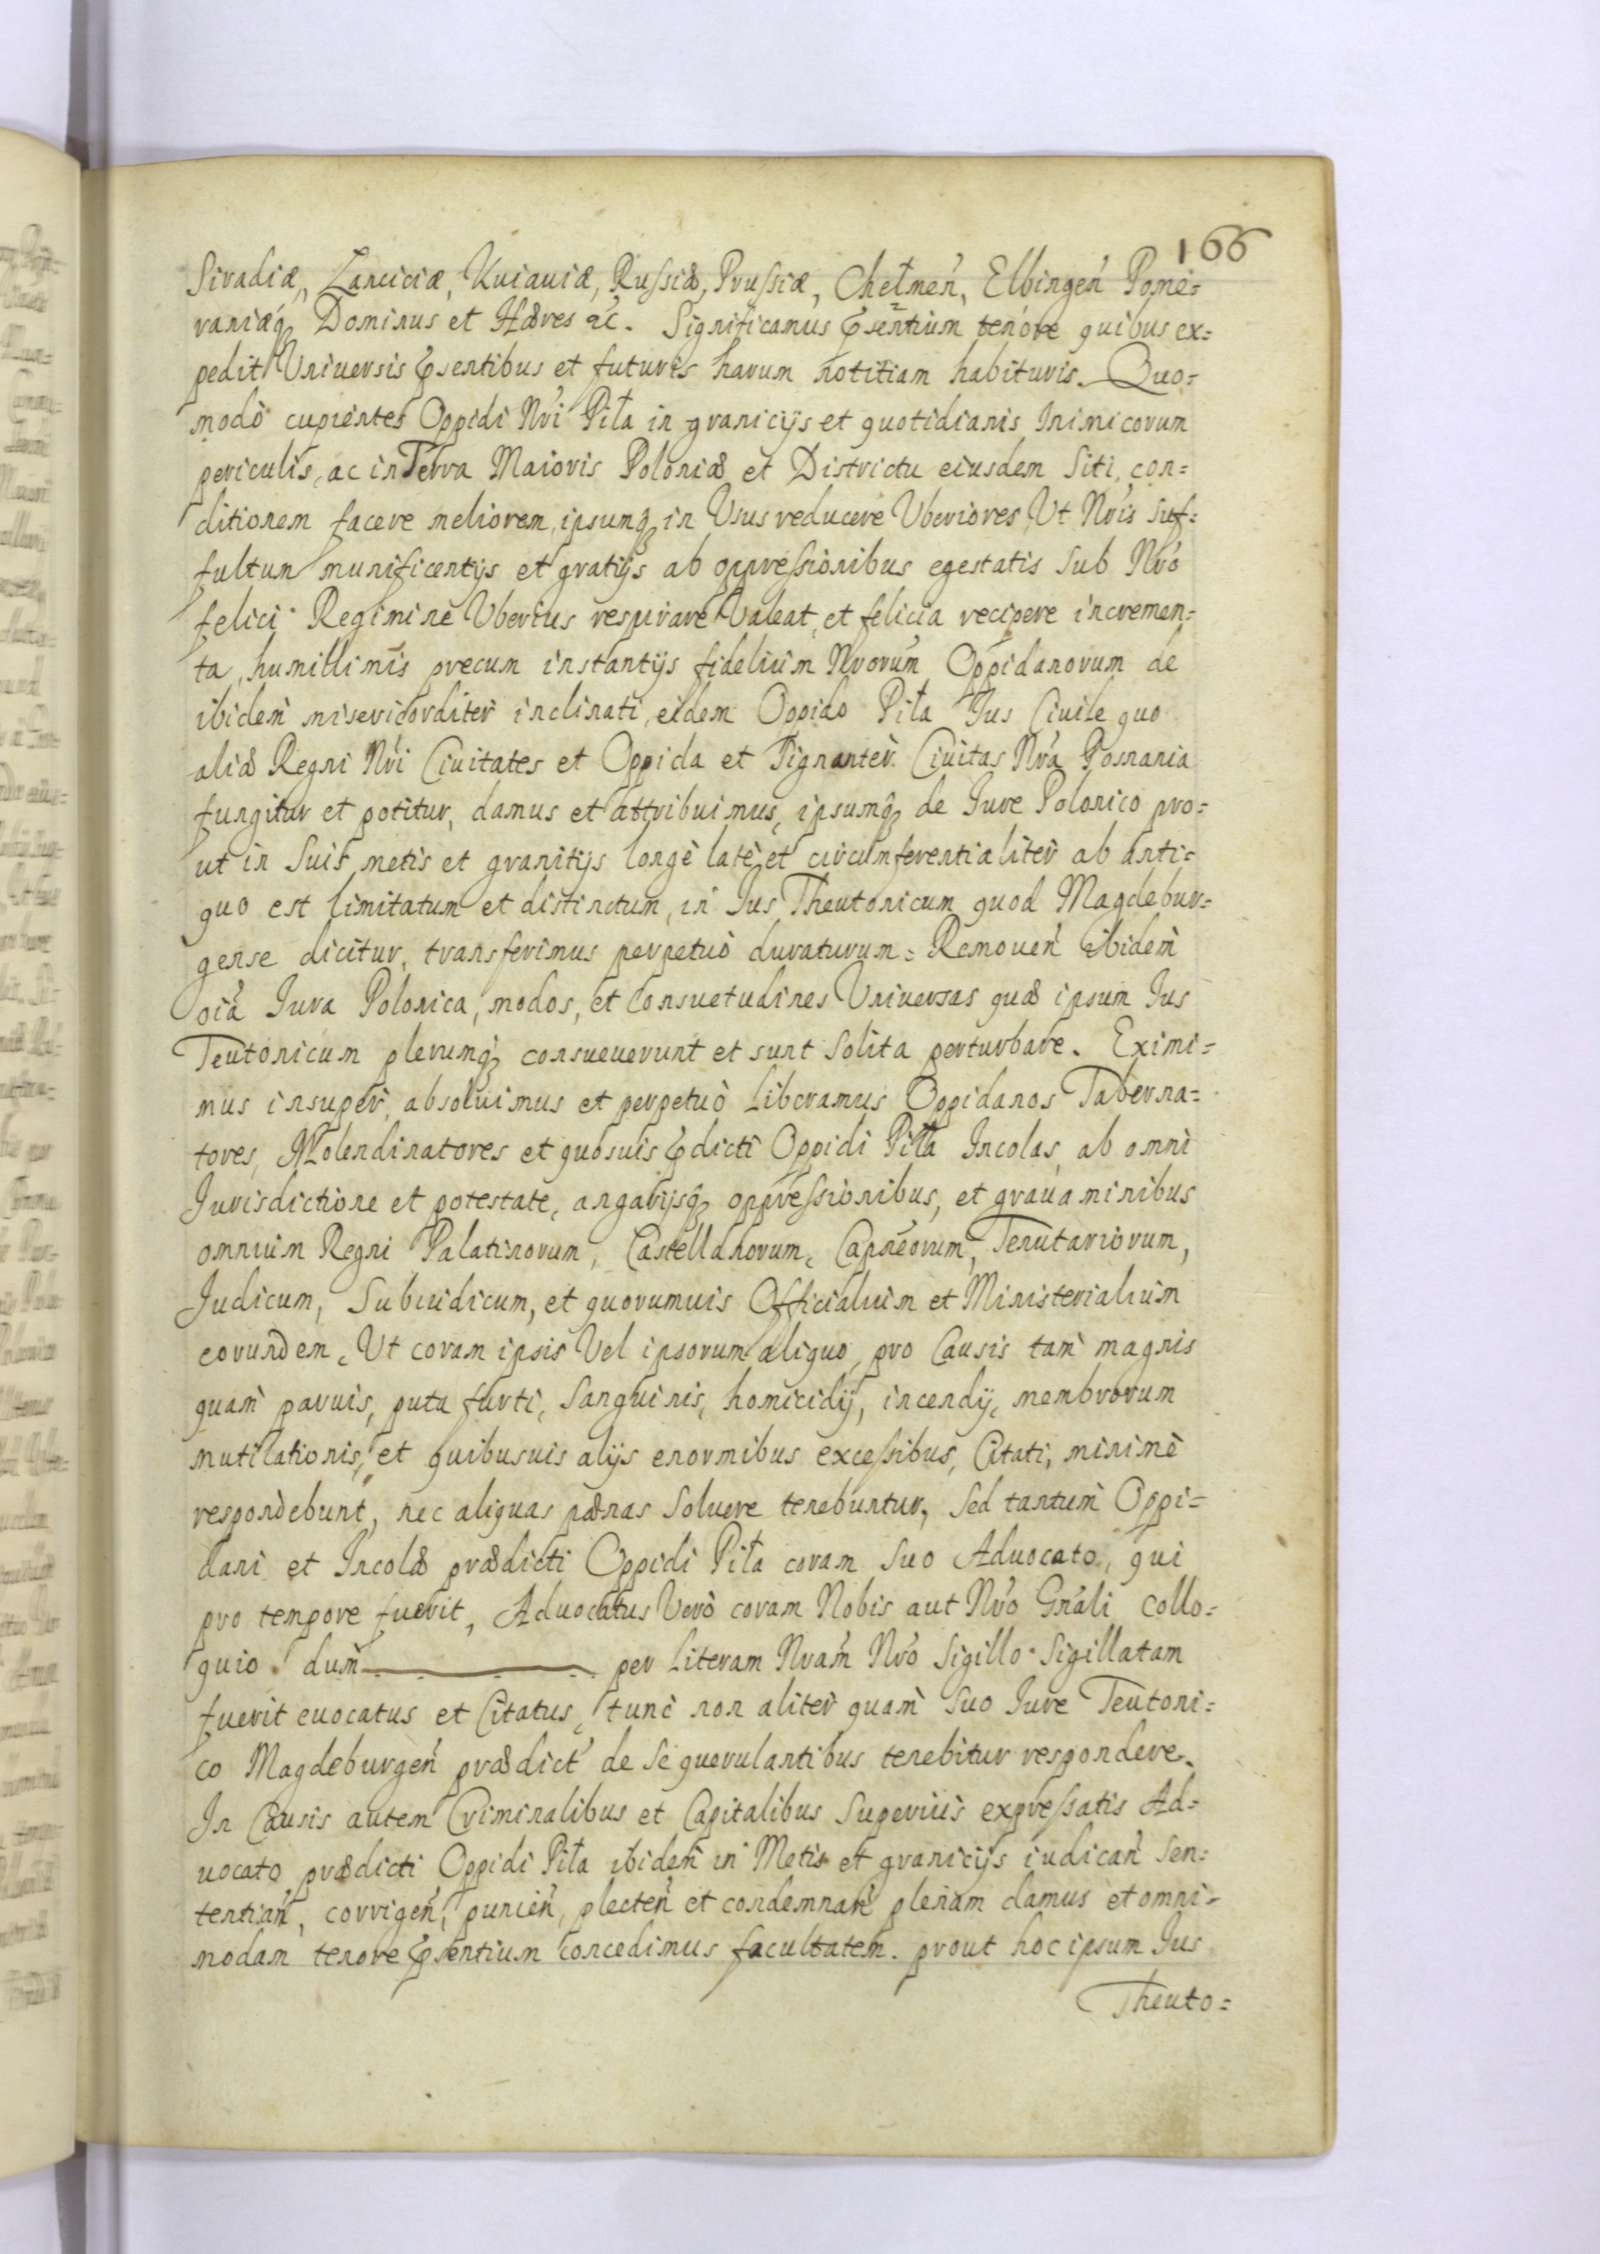 166
Siradiæ, Lanciciæ, Kuiauiæ, Russiæ, Prussiæ, Chełmeń, Elbingeń Pome=
raniæq; Dominus et Hæres &c. Significamus Psentium tenore quibus ex=
pedit Vniuersis Psentibus et futuris harum notitiam habituris. Quo=
modò cupientes Oppidi Nri Piła in granicijs et quotidianis Inimicorum
periculis, ac in Terra Maioris Poloniæ et Districtu eiusdem Siti, con=
ditionem facere meliorem, ipsumq; in Vsus reducere Vberiores, Vt Nris Suf=
fultum munificentijs et gratijs ab oppressionibus egestatis Sub Nro
felici Regimine Vberius respirare Valeat, et felicia recipere incremen=
ta, humillimis precum instantijs fidelium Nrorum Oppidanorum de
ibidem misericorditer inclinati, eidem Oppido Piła Jus Ciuile quo
aliæ Regni Nri Ciuitates et Oppida et Signanter Ciuitas Nra Posnania
fungitur et potitur, damus et attribuimus, ipsumq; de Jure Polonico pro=
ut in Suis metis et granitijs longè latè et circumferentialiter ab anti=
quo est limitatum et distinctum, in Jus Theutonicum quod Magdebur=
gense dicitur, transferimus perpetuò duraturum = Remoueń ibidem
oia Jura Polonica, modos, et Consuetudines Vniuersas quæ ipsum Jus
Teutonicum plerumq; consueuerunt et sunt Solita perturbare. Eximi=
mus insuper, absoluimus et perpetuò Liberamus Oppidanos Taberna=
tores, Molendinatores et quosuis Pdicti Oppidi Piła Incolas, ab omni
Jurisdictione et potestate, angarijsq; oppressionibus, et grauaminibus
omnium Regni Palatinorum, Castellanorum, Capneorum, Tenutariorum,
Judicum, Subiudicum, et quorumuis Officialium et Ministerialium
eorundem, Vt coram ipsis Vel ipsorum aliquo, pro Causis tam magnis
quam paruis, puta furti, Sanguinis, homicidij, incendij, membrorum
mutilationis, et quibusuis alijs enormibus excessibus, Citati, minimè
respondebunt, nec aliquas pænas Soluere tenebuntur, Sed tantum Oppi=
dani et Incolæ prædicti Oppidi Piła coram Suo Aduocato, qui
pro tempore fuerit, Aduocatus Verò coram Nobis aut Nro Gnali Collo=
quio dum per Literam Nram Nro Sigillo Sigillatam
fuerit euocatus et Citatus, tunc non aliter quam Suo Jure Teutoni=
co Magdeburgeń prædict de Se querulantibus tenebitur respondere.
In Causis autem Criminalibus et Capitalibus Superius expressatis Ad=
uocato prædicti Oppidi Piła ibidem in Metis et granicijs iudicań Sen=
tentiań, corrigeń, punień, plecteń et condemnań plenam damus et omni=
modam tenore Psentium Concedimus facultatem. prout hoc ipsum Jus
Theuto=